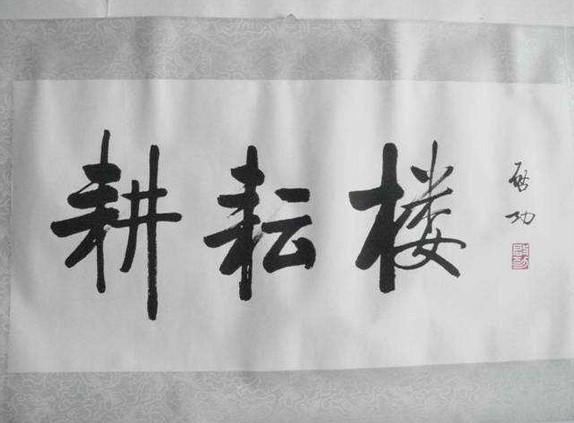 耕耘楼
启功